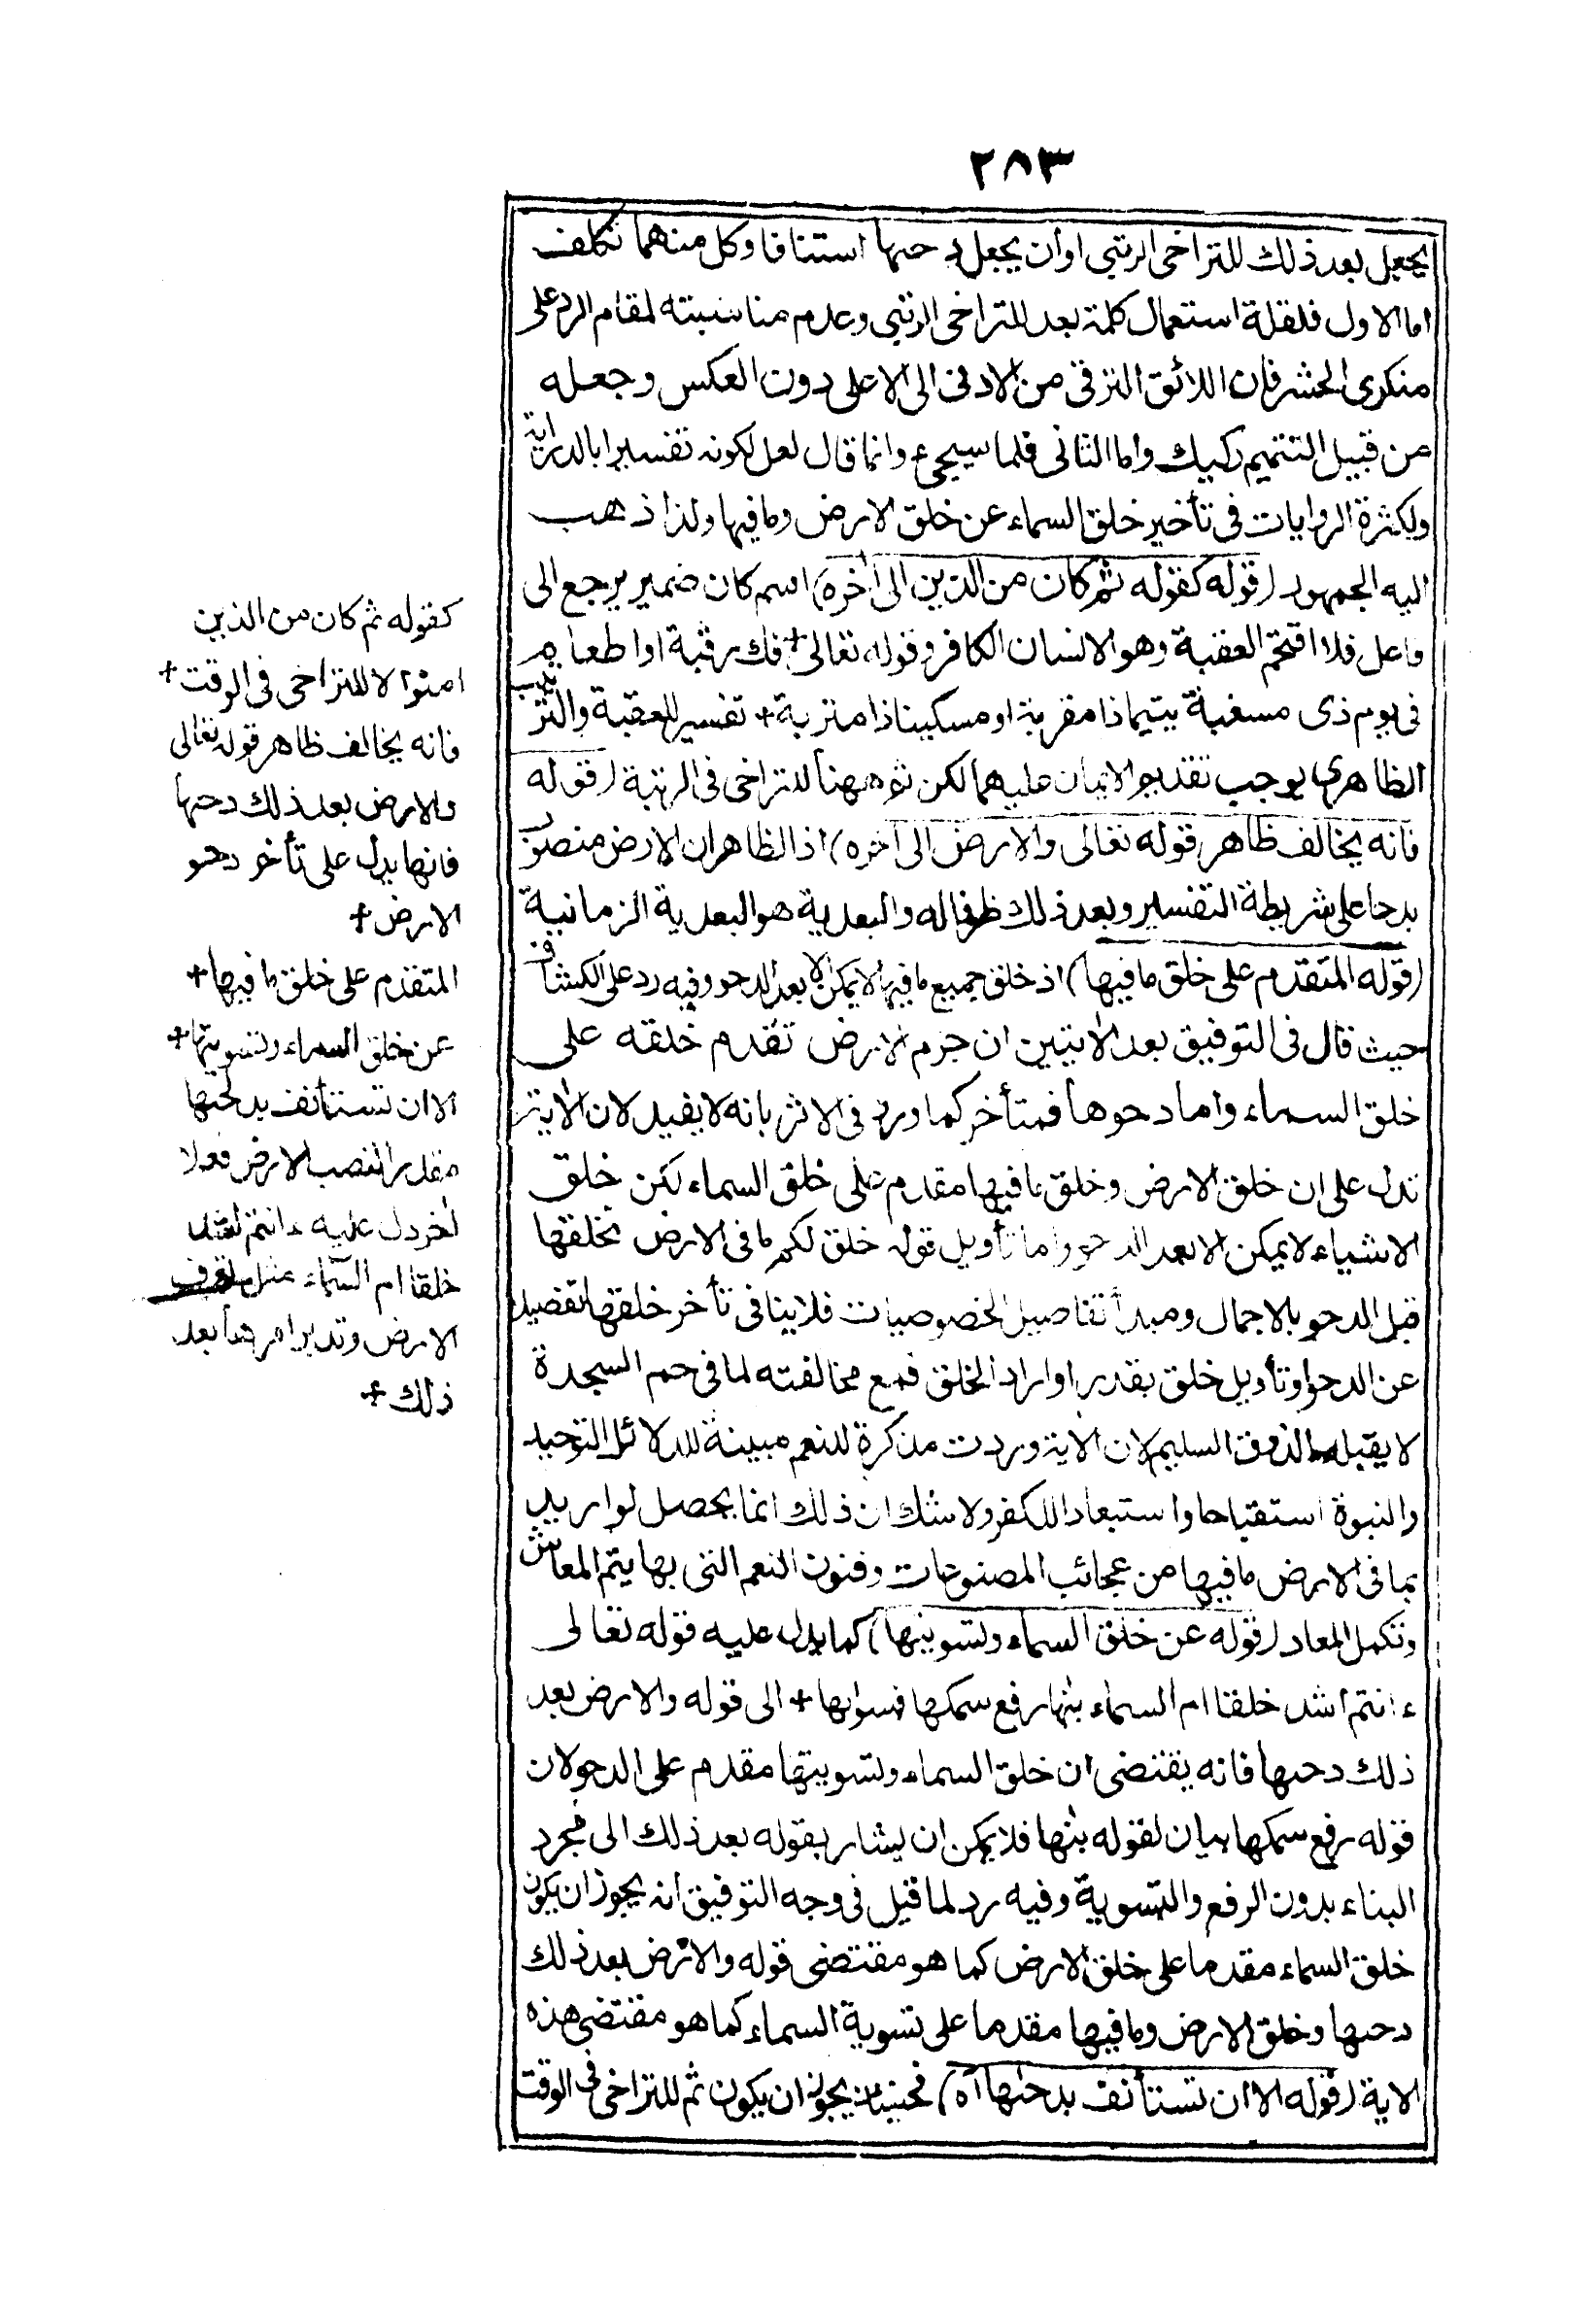 ٢٨٣
يجعل بعد ذلك للتراخى الرتبى او ان يجعل دحيها استنافا وكل منهما تكلف
اما الاول فلقلة استعمال كلمة بعد للتراخى الرتبى وعدم مناسبته لمقام الرد على
منكرى الحشر فان اللائق الترقى من الادنى الى الاعلى دون العكس وجعله
من قبيل التتميم ركيك واما الثانى فلما سيجىء وانما قال لعل لكونه تفسيرا بالدراية
ولكثرة الروايات فى تأخير خلق السماء عن خلق الارض وما فيها ولذا ذهب
اليه الجمهور (قوله كقوله ثم كان من الذين الى آخره) اسم كان ضمير يرجع الى
فاعل فلا اقتحم العقبة وهو الانسان الكافر وقوله تعالى + فك رقبة او اطعام
فى يوم ذى مسغبة يتيما ذا مقربة او مسكينا ذا متربة + تفسير للعقبة والترتيب
الظاهرى يوجب تقديم الايمان عليهما لكن ثم ههنا للتراخى فى الرتبة (قوله
فانه يخالف ظاهر قوله تعالى والارض الى آخره) اذ الظاهر ان الارض منصوب
بدحا على شريطة التفسير وبعد ذلك ظرفا له والبعدية هو البعدية الزمانية
(قوله المتقدم على خلق ما فيها) اذ خلق جميع ما فيها لا يمكن الا بعد الدحو وفيه رد على الكشاف
حيث قال فى التوفيق بعد الايتين ان جرم الارض تقدم خلقه على
خلق السماء واما دحوها فمتأخر كما ورد فى الاثر بانه لا يفيد لان الاية
تدل على ان خلق الارض وخلق ما فيها مقدم على خلق السماء لكن خلق
الاشياء لا يمكن الا بعد الدحو واما تأويل قوله خلق لكم ما فى الارض بخلقها
قبل الدحو بالاجمال ومبدأ تفاصيل الخصوصيات فلا ينافى تأخر خلقها تفصيلا
عن الدحو او تأويل خلق بقدر او اراد الخلق فمع مخالفته لما فى حم السجدة
لا يقبله الذوق السليم لان الاية وردت مذكرة للنعم مبينة للدلائل التوحيد
والنبوة استقباحا واستبعادا للكفر ولا شك ان ذلك انما يحصل لو اريد
بما فى الارض ما فيها من عجائب المصنوعات وفنون النعم التى بها يتم المعاش
وتكمل المعاد (قوله عن خلق السماء وتسويتها) كما يدل عليه قوله تعالى
ءانتم اشد خلقا ام السماء بنٰها رفع سمكها فسوٰيها + الى قوله والارض بعد
ذلك دحيها فانه يقتضى ان خلق السماء وتسويتها مقدم على الدحو لان
قوله رفع سمكها بيان لقوله بنٰها فلا يمكن ان يشار بقوله بعد ذلك الى مجرد
البناء بدون الرفع والتسوية وفيه رد لما قيل فى وجه التوفيق انه يجوز ان يكون
خلق السماء مقدما على خلق الارض كما هو مقتضى قوله والارض بعد ذلك
دحيها وخلق الارض وما فيها مقدما على تسوية السماء كما هو مقتضى هذه
الاية (قوله الا ان تستأنف بدحيها اه) فحينئذ يجوز ان يكون ثم للتراخى فى الوقت
كقوله ثم كان من الذين
امنوا لا للتراخى فى الوقت +
فانه يخالف ظاهر قوله تعالى
والارض بعد ذلك دحيها
فانها يدل على تأخر دحو
الارض +
المتقدم على خلق ما فيها +
عن خلق السماء وتسويتها +
الا ان تستأنف بدحيها
مقدرا لنصب الارض فعلا
اخر دل عليه ءانتم اشد
خلقا ام السماء مثل تعرف
الارض وتدبر امرها بعد
ذلك +